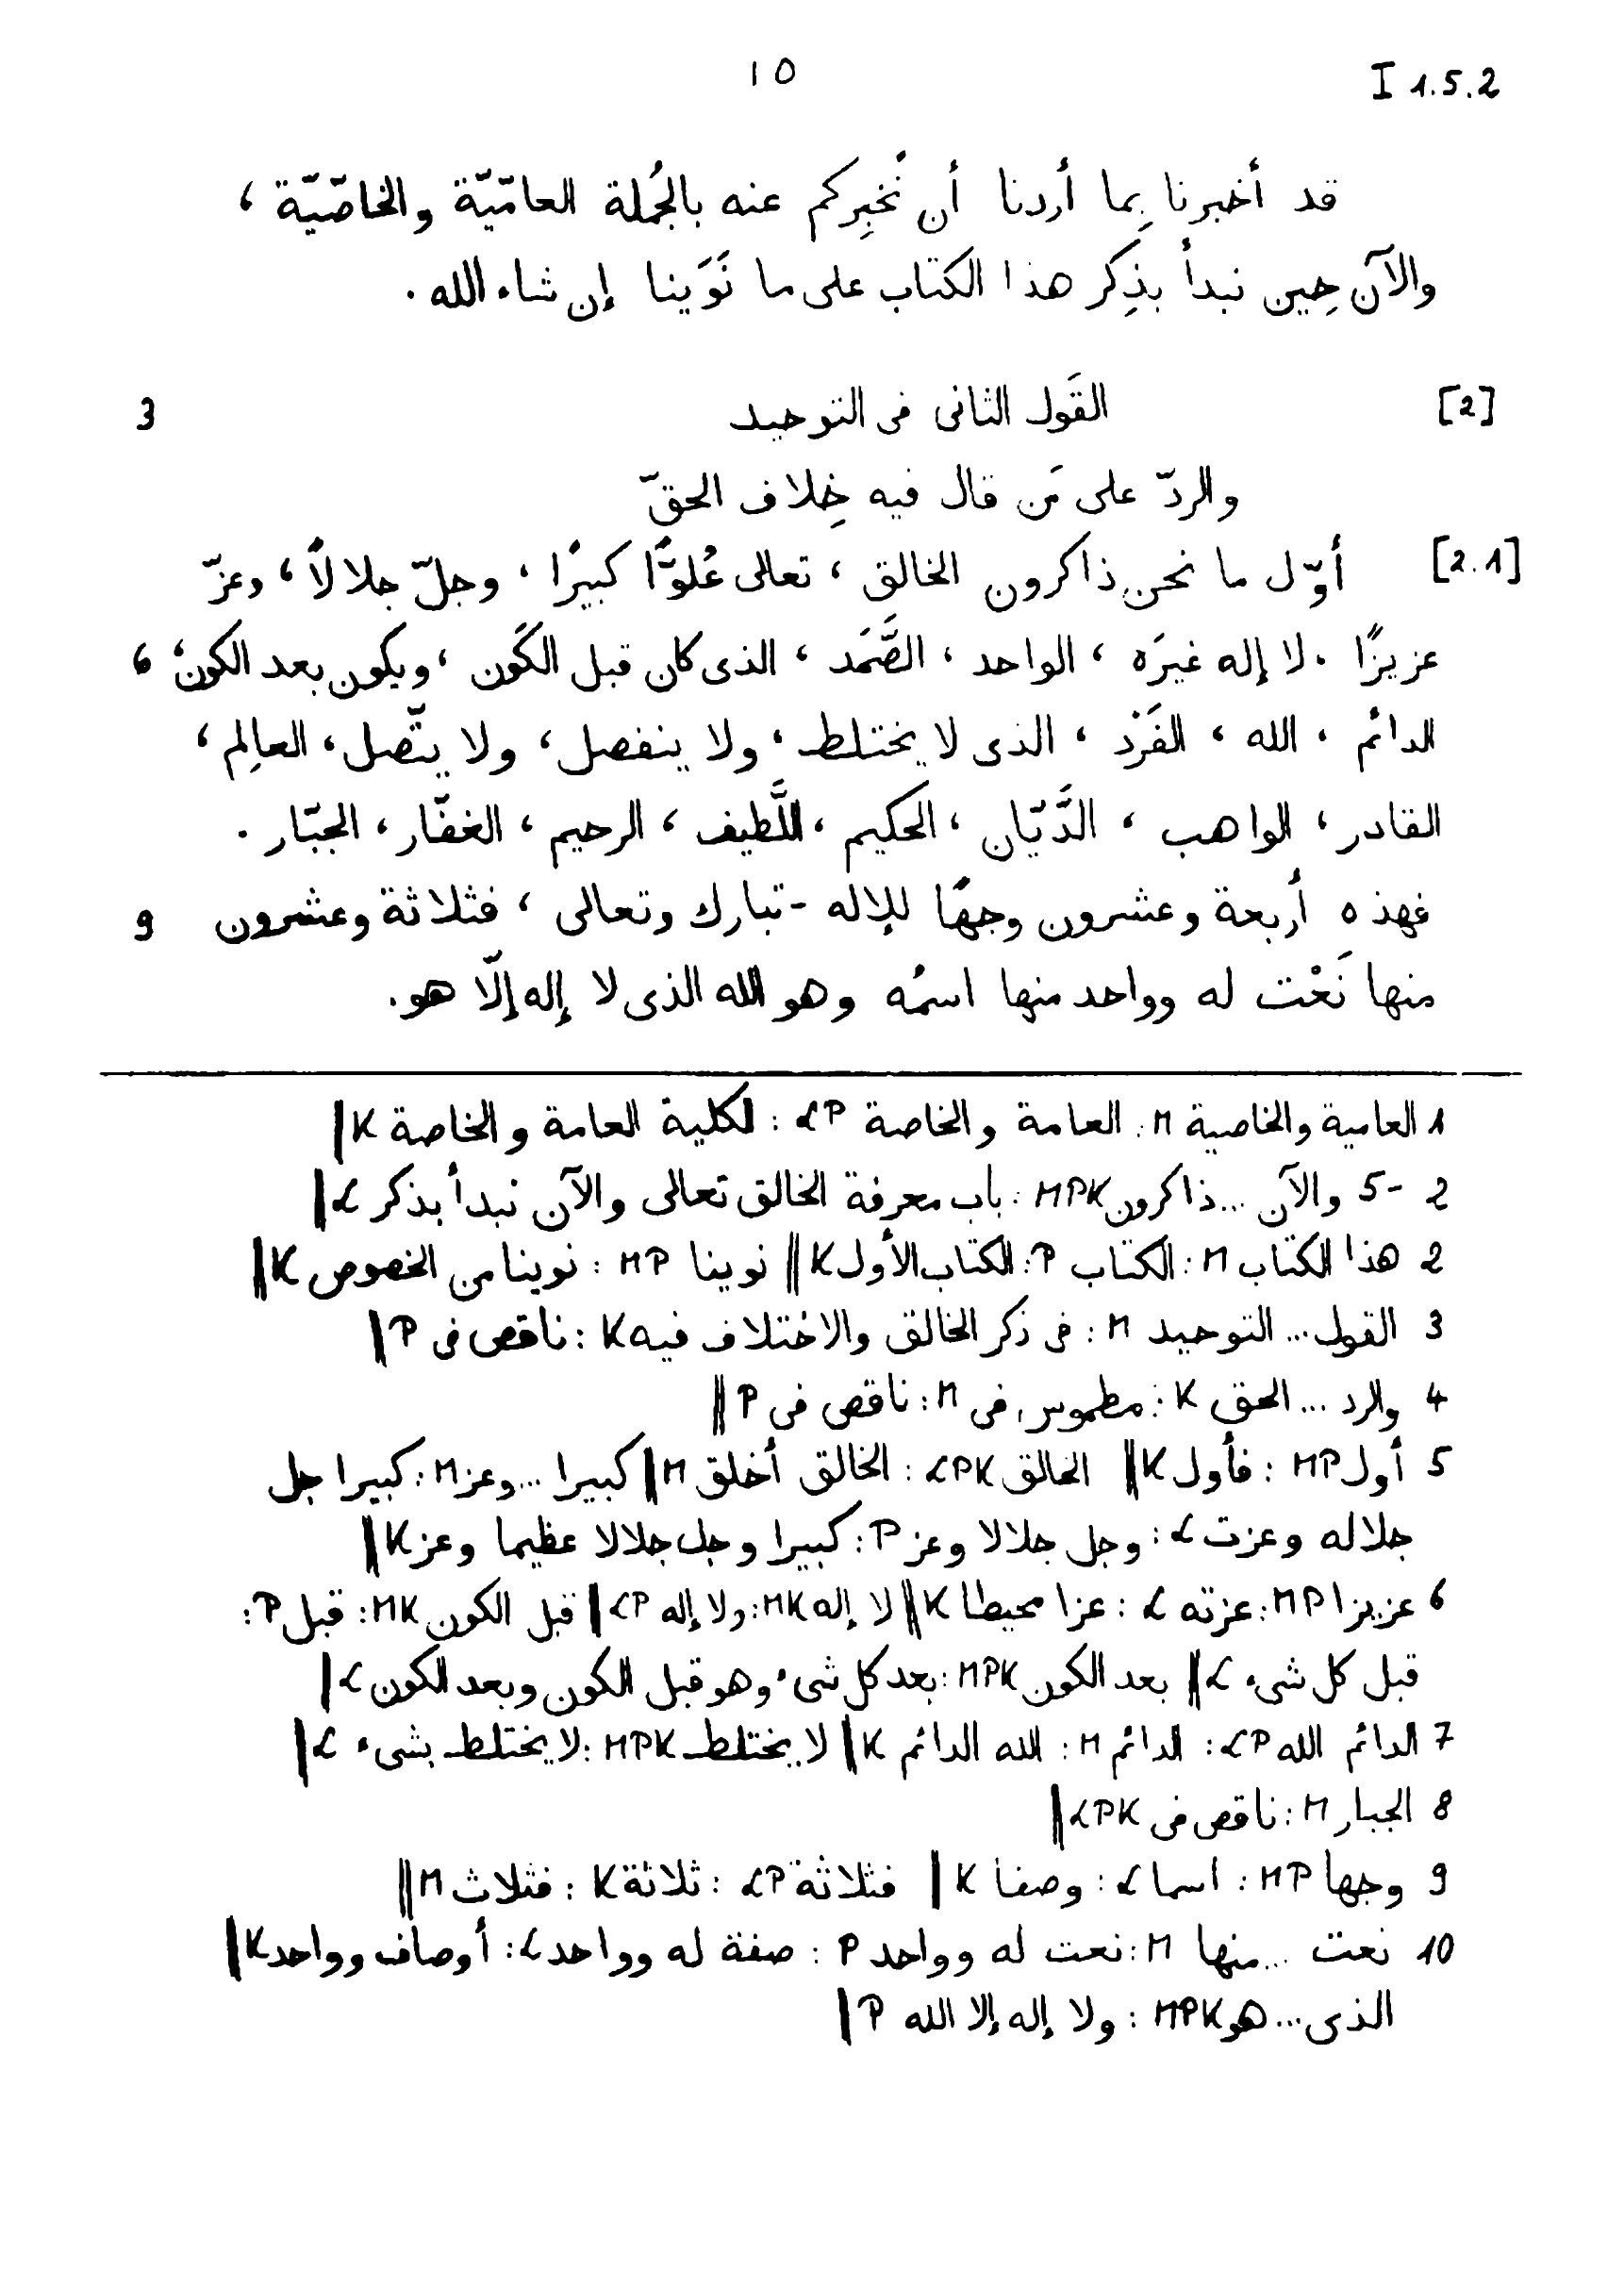 I 1.5.2
١٥
قد أخبرنا بِما أردنا أن نُخبِركم عنه بالجُملة العامّيّة والخاصّيّة ،
والآن حِين نبدأ بذِكر هذا الكتاب على ما نَوَينا إن شاء الله .
[2] القَول الثانى فى التوحيد 3
والردّ على مَن قال فيه خِلاف الحقّ
[2.1] أوّل ما نحن ذاكرون الخالق ، تعالى عُلوًّا كبيرًا ، وجلّ جلالاً ، وعزّ
عزيزًا . لا إله غيرَه ، الواحد ، الصَّمَد ، الذى كان قبل الكَون ، ويكون بعد الكون ، 6
الدائم ، الله ، الفَرْد ، الذى لا يختلط ، ولا ينفصل ، ولا يتّصل ، العالِم ،
القادر ، الواهب ، الدَّيّان ، الحكيم ، اللَّطيف ، الرحيم ، الغفّار ، الجبّار .
فهذه أربعة وعشرون وجهًا للإله - تبارك وتعالى ، فثلاثة وعشرون 9
منها نَعْت له وواحد منها اسمُه وهو الله الذى لا إله إلّا هو .
1 العامية والخاصية M : العامة والخاصة LP : لكلية العامة والخاصة K ||
2 -5 والآن ... ذاكرون MPK : باب معرفة الخالق تعالى والآن نبدأ بذكر L ||
2 هذا الكتاب M : الكتاب P : الكتاب الأول K || نوينا MP : نوينا من الخصوص K ||
3 القول ... التوحيد M : فى ذكر الخالق والاختلاف فيه K : ناقص فى P ||
4 والرد ... الحق K : مطموس فى M : ناقص فى P ||
5 أول MP : فأول K || الخالق LPK : الخالق أخلق M || كبيرا ... وعز M : كبيرا جل
جلاله وعزت L : وجل جلالا وعز P : كبيرا وجل جلالا عظيما وعز K ||
6 عزيزا MP : عزته L : عزا محيطا K || لا إله MK : ولا إله LP || قبل الكون MK : قبل P :
قبل كل شىء L || بعد الكون MPK : بعد كل شىء وهو قبل الكون وبعد الكون L ||
7 الدائم الله LP : الدائم M : الله الدائم K || لا يختلط MPK : لا يختلط بشىء L ||
8 الجبار M : ناقص فى LPK ||
9 وجها MP : اسما L : وصفا K || فثلاثة LP : ثلاثة K : فثلاث M ||
10 نعت ... منها M : نعت له وواحد P : صفة له وواحد L : أوصاف وواحد K ||
الذى ... هو MPK : ولا إله إلا الله P ||